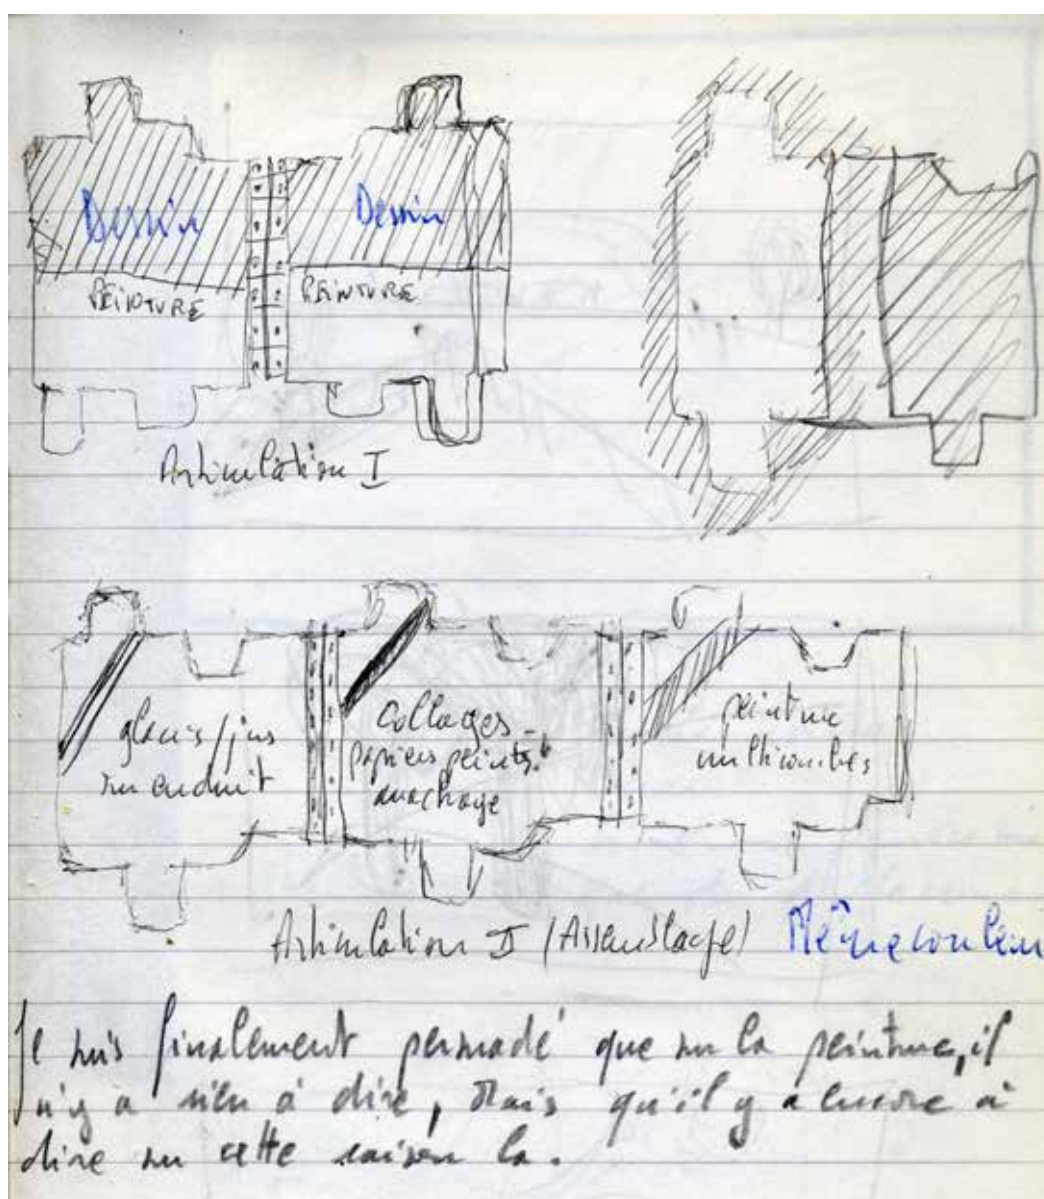 Dessin
Dessin
PEINTURE
PEINTURE
Articulation I
glacis/jus
sur enduit
collages
papiers peints
arrachage
peinture
multicouches
Articulation II (Assemblage)
Même couleur
Je suis finalement persuadé que sur la peinture, il
n'y a rien à dire, mais qu'il y a encore à
dire sur cette raison là.